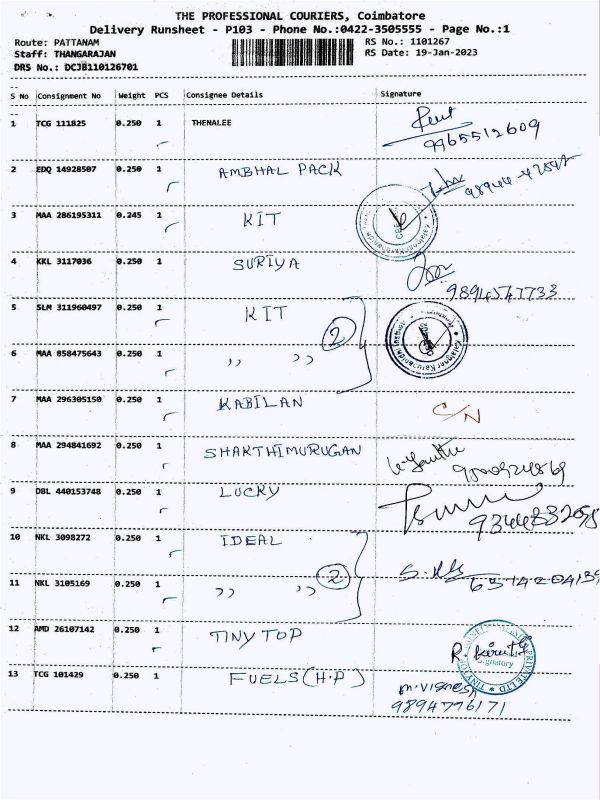 THE PROFESSIONAL COURIERS, Coimbatore
Delivery Runsheet - P103 - Phone No.:0422-3505555 - Page No.:1
Route: PATTANAM RS No.: 1101267
Staff: THANGARAJAN RS Date: 19-Jan-2023
DRS No.: DCJB110126701
S No Consignment No Weight PCS Consignee Details Signature
1 TCG 111825 0.250 1 THENALEE
9965512609
2 EDQ 14928507 0.250 1 AMBHAL PACK
3 MAA 286195311 0.245 1 KIT
4 KKL 3117036 0.250 1 SURIYA
9894547733
5 SLM 311960497 0.250 1 KIT
2
6 MAA 858475643 0.250 1 ,, ,,
Kalaignar Karunanidhi
7 MAA 296305150 0.250 1 KABILAN C/N
8 MAA 294841692 0.250 1 SHAKTHIMURUGAN
9 DBL 440153748 0.250 1 LUCKY
10 NKL 3098272 0.250 1 IDEAL
2
11 NKL 3105169 0.250 1 ,, ,,
12 AMD 26107142 0.250 1 TINY TOP
13 TCG 101429 0.250 1 FUELS (H.P)
9894776171